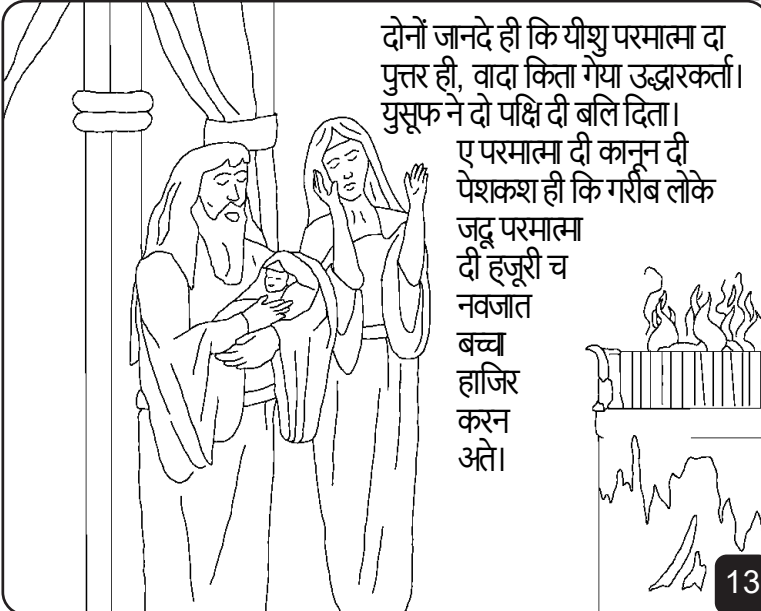 दोनों जानदे ही कि यीशु परमात्मा दा
पुत्तर ही, वादा किता गेया उद्धारकर्ता।
युसूफ ने दो पक्षि दी बलि दिता।
ए परमात्मा दी कानून दी
पेशकश ही कि गरीब लोके
जदू परमात्मा
दी हजूरी च
नवजात
बच्चा
हाजिर
करन
अते।
13